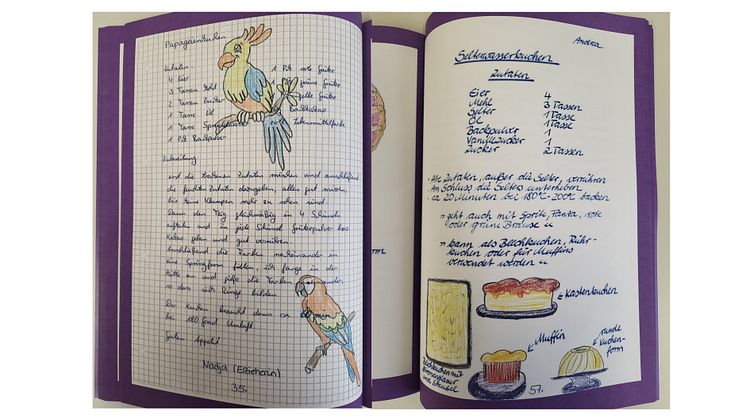 Papageienkuchen
Zutaten
4 Eier
3 Tassen Mehl
2 Tassen Zucker
1 Tasse Öl
1 Tasse
1 Pck Backpulver
1 Pck rote Grütze
1 Pck grüne Grütze
gelbe Grütze
Backkakao
Lebensmittelfarbe
Zubereitung
und die trockenen Zutaten mischen und anschließend
die feuchten Zutaten dazugeben, alles gut mixen,
bis keine Klumpen mehr zu sehen sind.
Dann den Teig gleichmäßig in 4 Schüsseln
aufteilen und in jede Schüssel Grützepulver bzw.
Kakao geben und gut verrühren.
Anschließend die Farben nacheinander in
eine Springform füllen, ich fange in der
Mitte an und gieße die Farben
so dass sich Ringe bilden.
Der Kuchen braucht dann ca
bei 180 Grad Umluft.
Guten Appetit
Nadja (Erzieherin)
35.
Andrea
Selterwasserkuchen
Zutaten
Eier 4
Mehl 3 Tassen
Selter 1 Tasse
Öl 1 Tasse
Backpulver 1
Vanillezucker 1
Zucker 2 Tassen
· Alle Zutaten, außer die Selter, verrühren
· Am Schluss die Selter unterheben
· ca 20 Minuten bei 180°C-200°C backen
» geht auch mit Sprite, Fanta, rote
oder grüne Brause «
» kann als Blechkuchen, Rühr-
kuchen oder für Muffins
verwendet werden «
Kastenkuchen
Muffin
runde
Kuchen-
form
Blechkuchen mit
und Streusel
57.